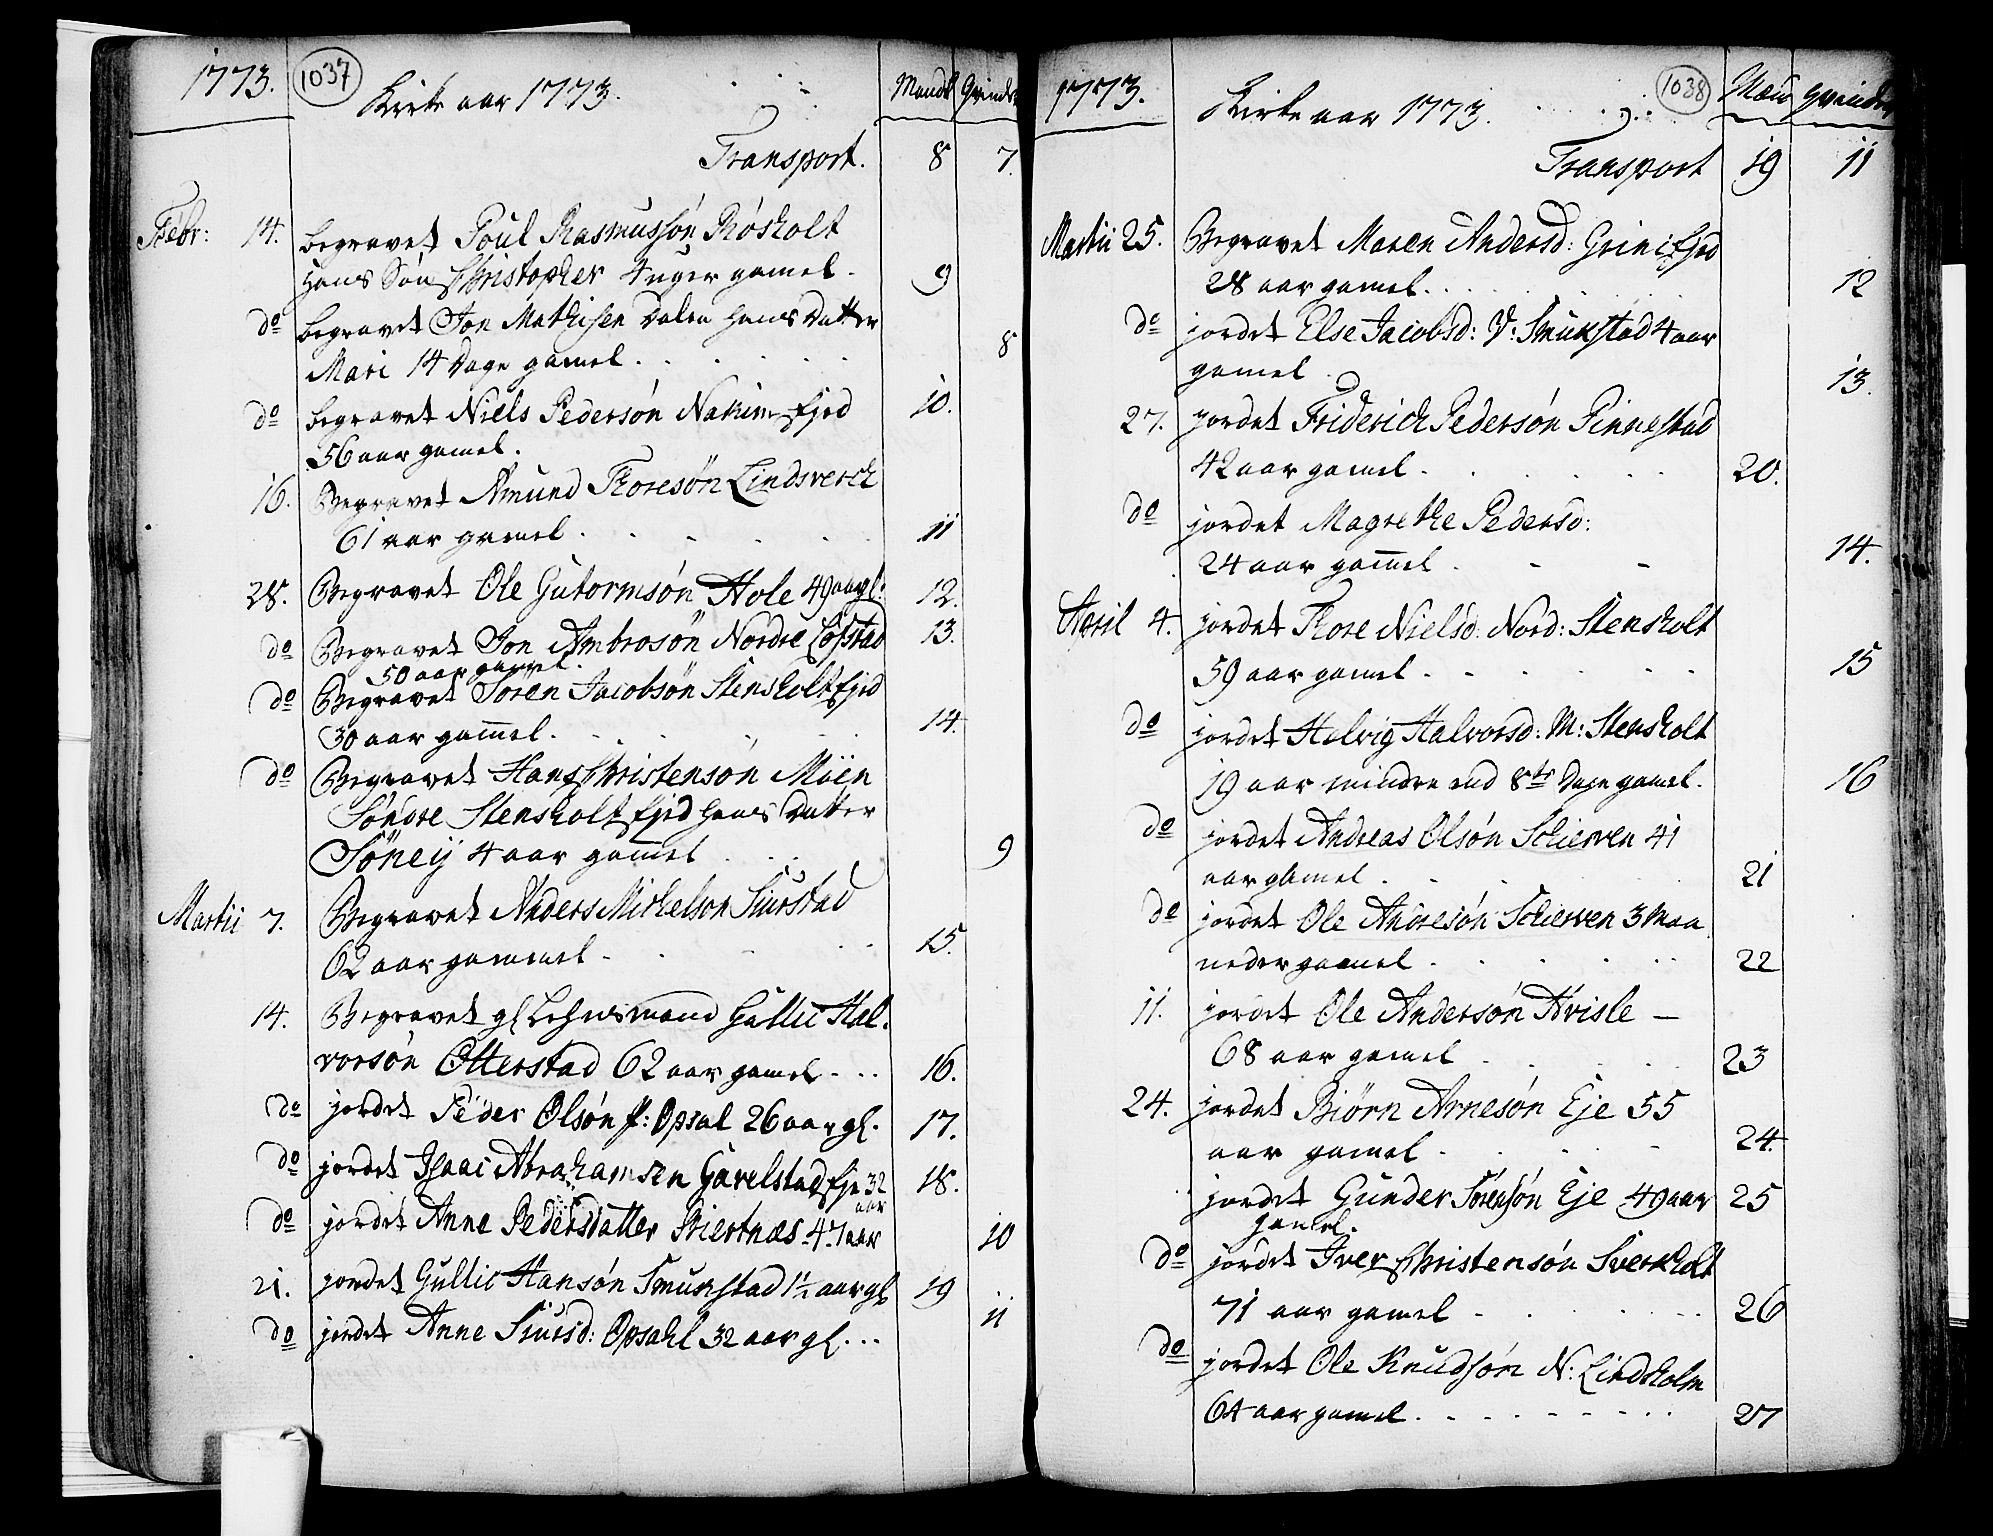 1773. 1037 Kirke aar 1773. Mandk Qvindk
Transport. 8 7.
Febr: 14. begravet Poul Rasmussøn Røsholt
Hans Søn Christopher 4 uger gamel. 9
do begravet Jon Mathisen Dalen Hans Datter
Mari 14 Dage gamel. 8
do begravet Niels Pedersøn Nakim Ejed 10.
56 aar gamel.
16. Begravet Amund Thoresøn Lindsverch
61 aar gamel. 11
28. Begravet Ole Gutormsøn Hole 49 aar gl: 12.
do Begravet Jon Ambrosøn Nordre Lofstad 13.
50 aar gamel.
do Begravet Søren Jacobsøn Stensholt Ejed
30 aar gam̅el. 14.
do Begravet Hans Christensøn Møen
Søndre Stensholt Ejed Hans Datter
Søneij 4 aar gam̅el 9
Martii 7. Begravet Anders Michelson Siurstad
62 aar gammel 15.
14. Begravet gl Lehnsmand Gullic Hal-
vorsøn Otterstad 62 aar gamel 16.
do jordet Peder Olsøn P: Opsal 26 aar gl. 17.
do jordet Isaac Abrahamsen Gavelstad Eje 32 18.
aar
do jordet Anne Pedersdatter Skiertnæs 47 aar 10
21. jordet Gullic Hansøn Smukstad 1½ aar gl 19
do jordet Anne Siursd: Opsahl 32 aar gl. 11
1773. Kirke aar 1773. 1038 Mænd Qvindk
Transport 19 11
Martii 25. Begravet Maren Andersd: Grini Ejed
28 aar gamel. 12
do jordet Else Jacobsd: V: Smukstad 4 aar
gamel 13.
27. jordet Friderich Pedersøn Pinnestad
42 aar gamel. 20.
do jordet Magrethe Pedersd:
24 aar gam̅el. 14.
April 4. jordet Thore Nielsd: Nord: Stensholt
59 aar gamel. 15
do jordet Helvig Halvorsd: M: Stensholt
19 aar mindre end 8te Dage gamel. 16
do jordet Andreas Olsøn Schierven 41
aar gamel. 21
do jordet Ole Andresøn Schierven 3 Maa
neder gamel. 22
11. jordet Ole Andersøn Avisle —
68 aar gamel 23
24. jordet Biørn Arnesøn Eje 55
aar gamel. 24.
jordet Gunder Sørensøn Eje 49 aar 25
gamel.
do jordet Iver Christensøn Sverkholt
71 aar gamel 26
do jordet Ole Knudsøn N: Lindholm
64 aar gamel. 27